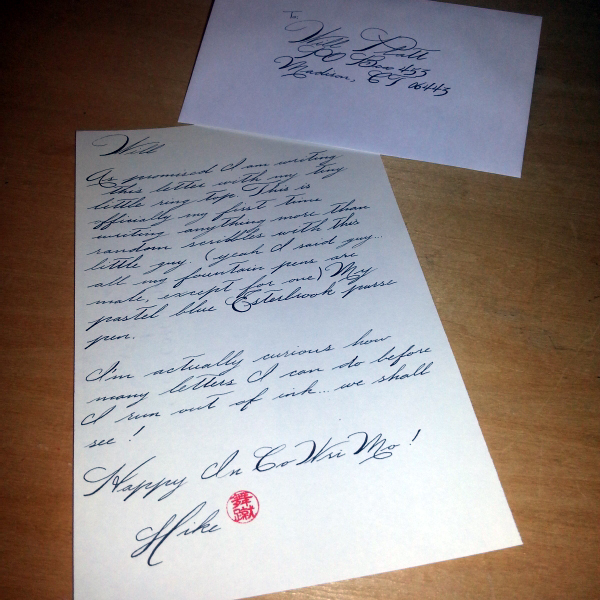 To:
Will Platt
PO Box 453
Madison, CT 06443
Will
As promised I am writing
this letter with my tiny
little ring top. This is
officially my first time
writing anything more than
random scribbles with this
little guy. (yeah I said guy...
all my fountain pens are
male, except for one) My
pastel blue Esterbrook purse
pen.
I'm actually curious how
many letters I can do before
I run out of ink... we shall
see!
Happy InCoWriMo!
Mike
舞
蹴